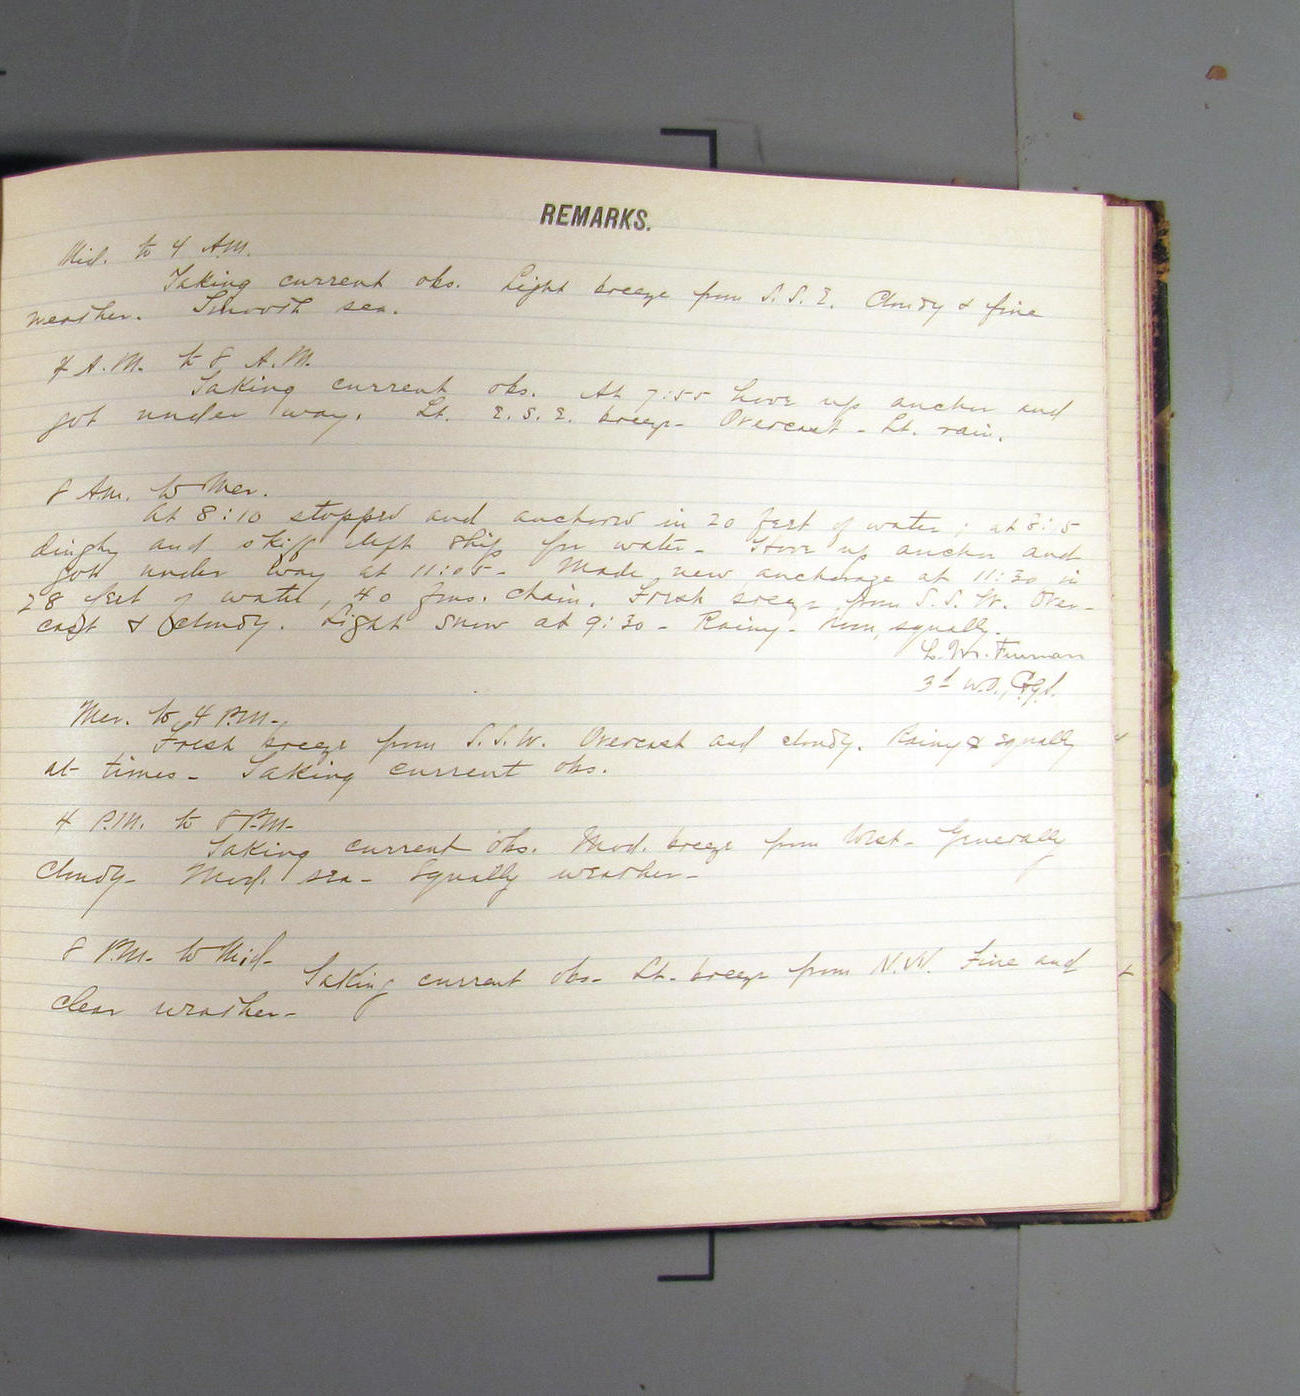 REMARKS.
Mid. to 4 A.M.
Taking current obs. Light breeze from S.S.E. Cloudy & fine
weather. Smooth sea.
4 A.M. to 8 A.M.
Taking current obs. At 7:55 hove up anchor and
got under way. Lt. E.S.E. breeze - Overcast - Lt. rain.
8 A.M. to Mer.
At 8:10 stopped and anchored in 20 feet of water; at
dinghy and skiff left ship for water - Hove up anchor and
got under way at 11:05 - Made new anchorage at 11:30 in
28 feet of water, 40 fms. chain. Fresh breeze from S.S.W. Over-
cast & cloudy. Light snow at 9:30 - Rainy - squally.
3d W.O.,
Mer. to 4 P.M.
Fresh breeze from S.S.W. Overcast and cloudy. Rainy & squally
at times - Taking current obs.
4 P.M. to 8 P.M.
Taking current obs. Mod. breeze from West - Generally
cloudy - Mod. sea - Squally weather -
8 P.M. to Mid -
Taking current obs - Lt. breeze from N.W. Fine and
clear weather -